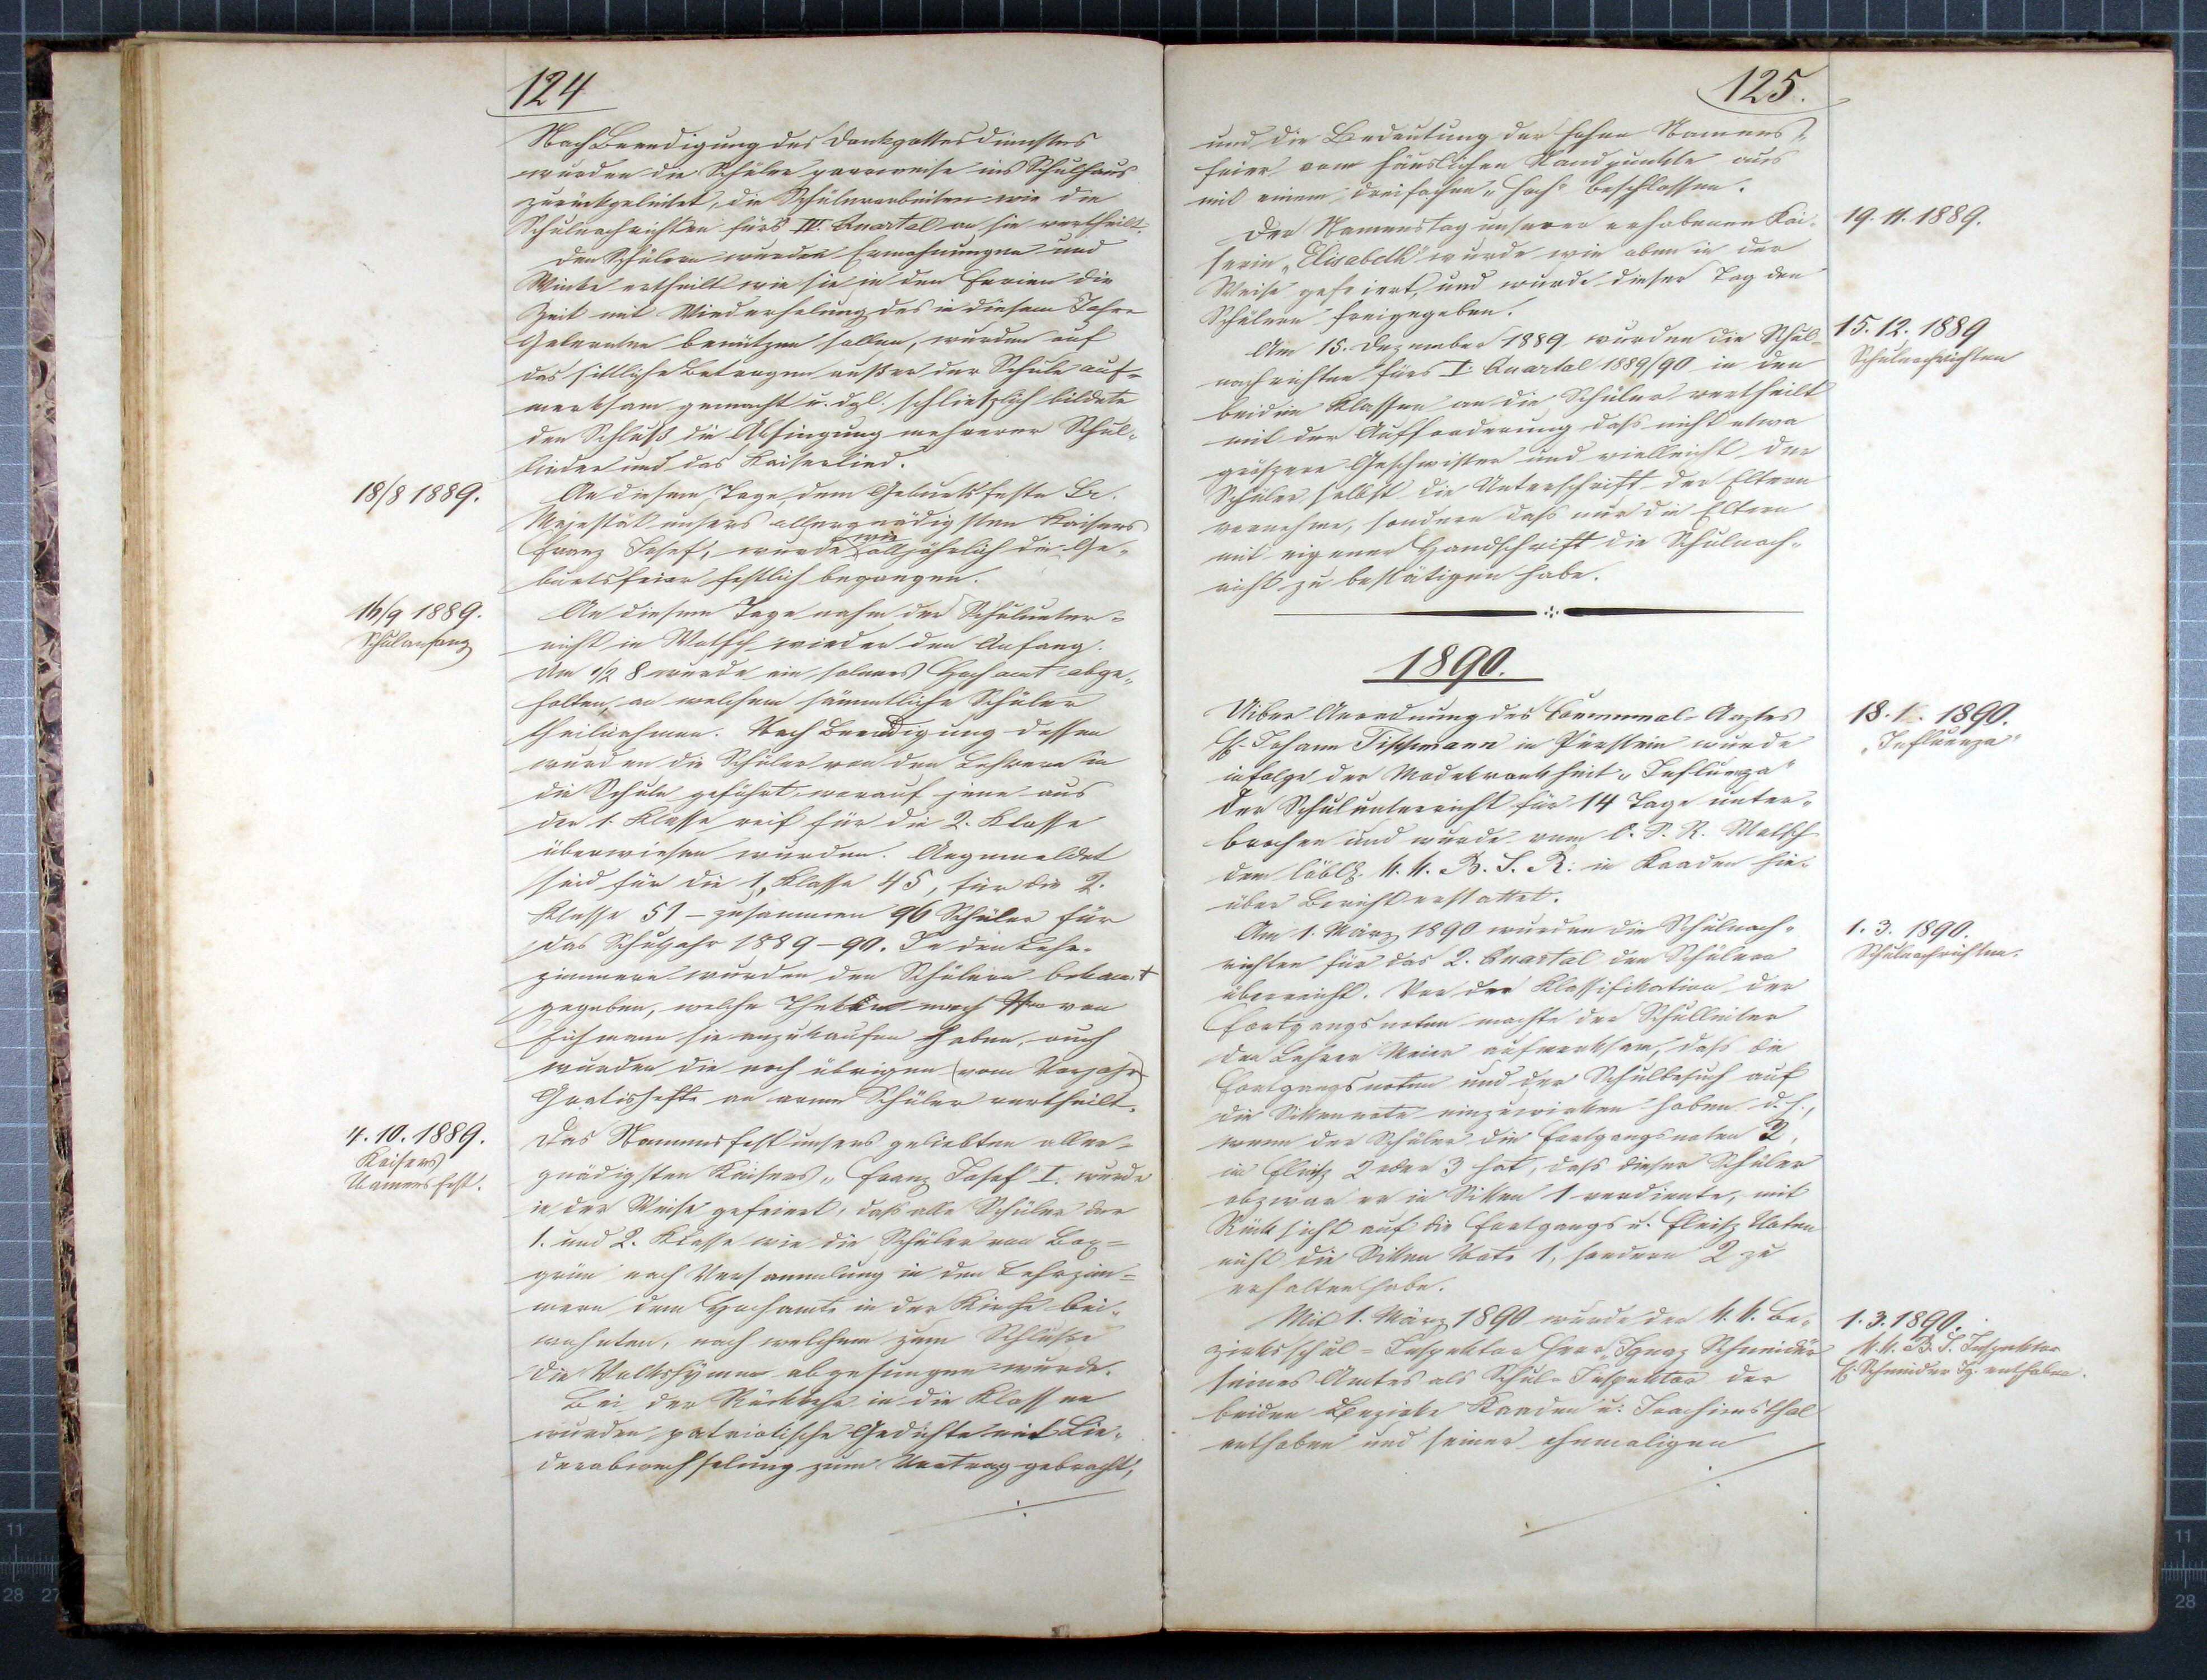 124
Nach Beendigung des Dankgottesdienstes
wurden die Schüler paarweise ins Schulhaus
zurückgeleitet, die Schülerarbeiten wie die
Schulnachrichten fürs IV. Quartal an sie vertheilt.
Den Schülern wurden Ermahnungen und
Winke ertheilt wie sie in den Ferien die
Zeit mit Wiederholung des in diesem Jahre
Gelernten benützen sollen, wurden auf
das sittliche Betragen außer der Schule auf-
merksam gemacht u. dgl. schließlich bildete
den Schluß die Absingung mehrerer Schul-
lieder und das Kaiserlied.
18/8 1889.
An diesem Tage, dem Geburtsfeste Sr.
Majestät unsers allergnädigsten Kaisers
Franz Josef, wurde wie alljährlich die Ge-
burtsfeier festlich begangen.
16/9 1889.
Schulanfang
An diesem Tage nahm der Schulunter-
richt in Wotsch wieder den Anfang.
Um 1/2 8 wurde ein solenes Hochamt abge-
halten, an welchem sämmtliche Schüler
theilnahmen. Nach Beendigung dessen
wurden die Schüler von den Lehrern in
die Schule geführt, worauf jene aus
der 1. Klasse reif für die 2. Klasse
überwiesen wurden. Angemeldet
sind für die 1. Klasse 45, für die 2.
Klasse 51 – zusammen 96 Schüler für
das Schuljahr 1889–90. In den Lehr-
zimmern wurden den Schülern bekannt
gegeben, welche Theken nach von
sie anzukaufen haben, auch
wurden die noch übrigen (vom Vorjahr)
Gratishefte an arme Schüler vertheilt.
4. 10. 1889.
Kaisers
Namensfest.
Das Namensfest unsers geliebten aller-
gnädigsten Kaisers „Franz Josef I. wurde
in der Weise gefeiert, daß alle Schüler der
1. und 2. Klasse wie die Schüler von Box-
grün nach Versammlung in den Lehrzim-
mern dem Hochamte in der Kirche bei-
wohnten, nach welchem zum Schluße
die Volkshymne abgesungen wurde.
Bei der Rückkehr in die Klassen
wurden patriotische Gedichte mit Lie-
derabwechselung zum Vortrag gebracht,
125.
und die Bedeutung der hohen Namens-
feier vom häuslichen Standpunkte aus
mit einem dreifachen „Hoch" beschlossen.
19. 11. 1889.
Der Namenstag unserer erhabenen Kai-
serin „Elisabeth" wurde wie oben in der
Weise gefeiert, und wurde dieser Tag den
Schülern freigegeben.
15. 12. 1889
Schulnachrichten
Am 15. Dezember 1889 wurden die Schul-
nachrichten fürs I. Quartal 1889/90 in den
beiden Klassen an die Schüler vertheilt
mit der Aufforderung daß nicht etwa
größere Geschwister und vielleicht der
Schüler selbst die Unterschrift der Eltern
vornehme, sondern daß nur die Eltern
mit eigener Handschrift die Schulnach-
richt zu bestätigen habe.
1890.
18. 1. 1890.
„Influenza"
Uiber Anordnung des Communal-Arztes
H. Johann Tischmann in Pürstein wurde
infolge der Modekrankheit „Influenza"
der Schulunterricht für 14 Tage unter-
brochen und wurde vom O. S. R. Wotsch
dem löbl. k. k. B. S. R. in Kaaden hie-
über Bericht erstattet.
1. 3. 1890.
Schulnachrichten.
Am 1. März 1890 wurden die Schulnach-
richten für das 2. Quartal den Schülern
überreicht. Vor der Klassifikation der
Fortgangsnoten machte der Schulleiter
den Lehrer Meier aufmerksam, daß die
Fortgangsnoten und der Schulbesuch auf
die Sittennote einzuwirken haben d. h.,
wenn der Schüler die Fortgangsnoten 2,
in Fleiß 2 oder 3 hat, daß dieser Schüler
obzwar er in Sitten 1 verdiente, mit
Rücksicht auf die Fortgangs u. Fleiß Noten
nicht die Sitten Note 1, sondern 2 zu
erhalten habe.
1. 3. 1890.
k. k. B. S. Inspektor
H. Schneider Ig. enthoben.
Mit 1. März 1890 wurde der k. k. Be-
zirksschul-Inspektor Herr Ignaz Schneider
seines Amtes als Schul-Inspektor der
beiden Bezirke Kaaden u. Joachimsthal
enthoben und seiner ehemaligen